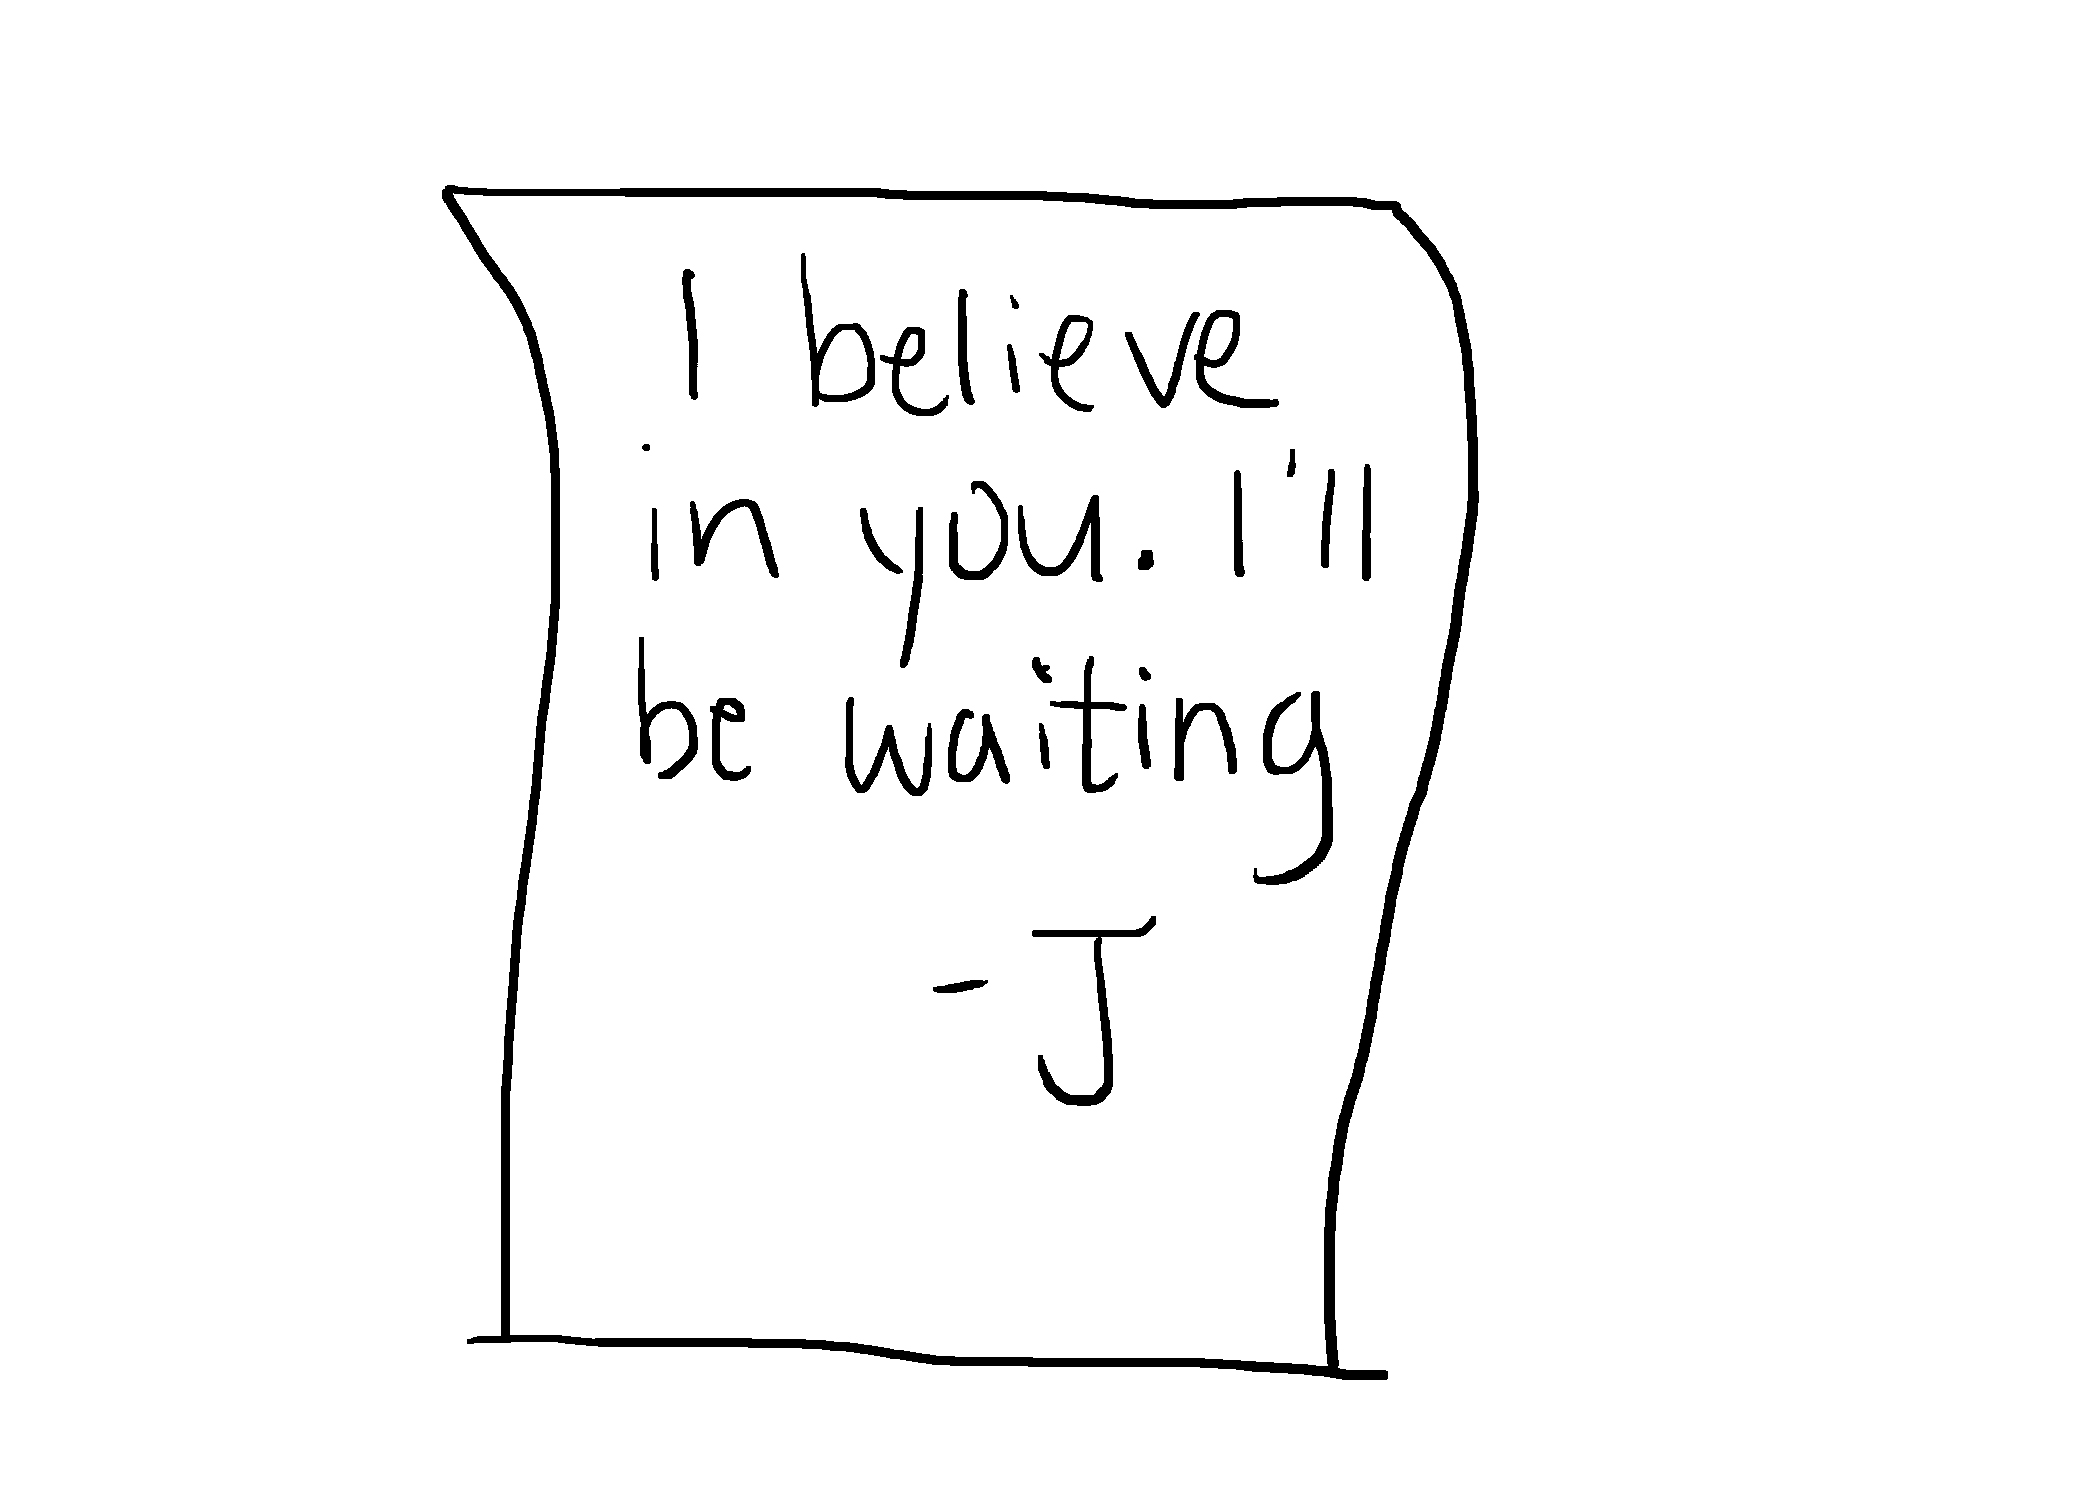 I believe
in you. I'll
be waiting
- J